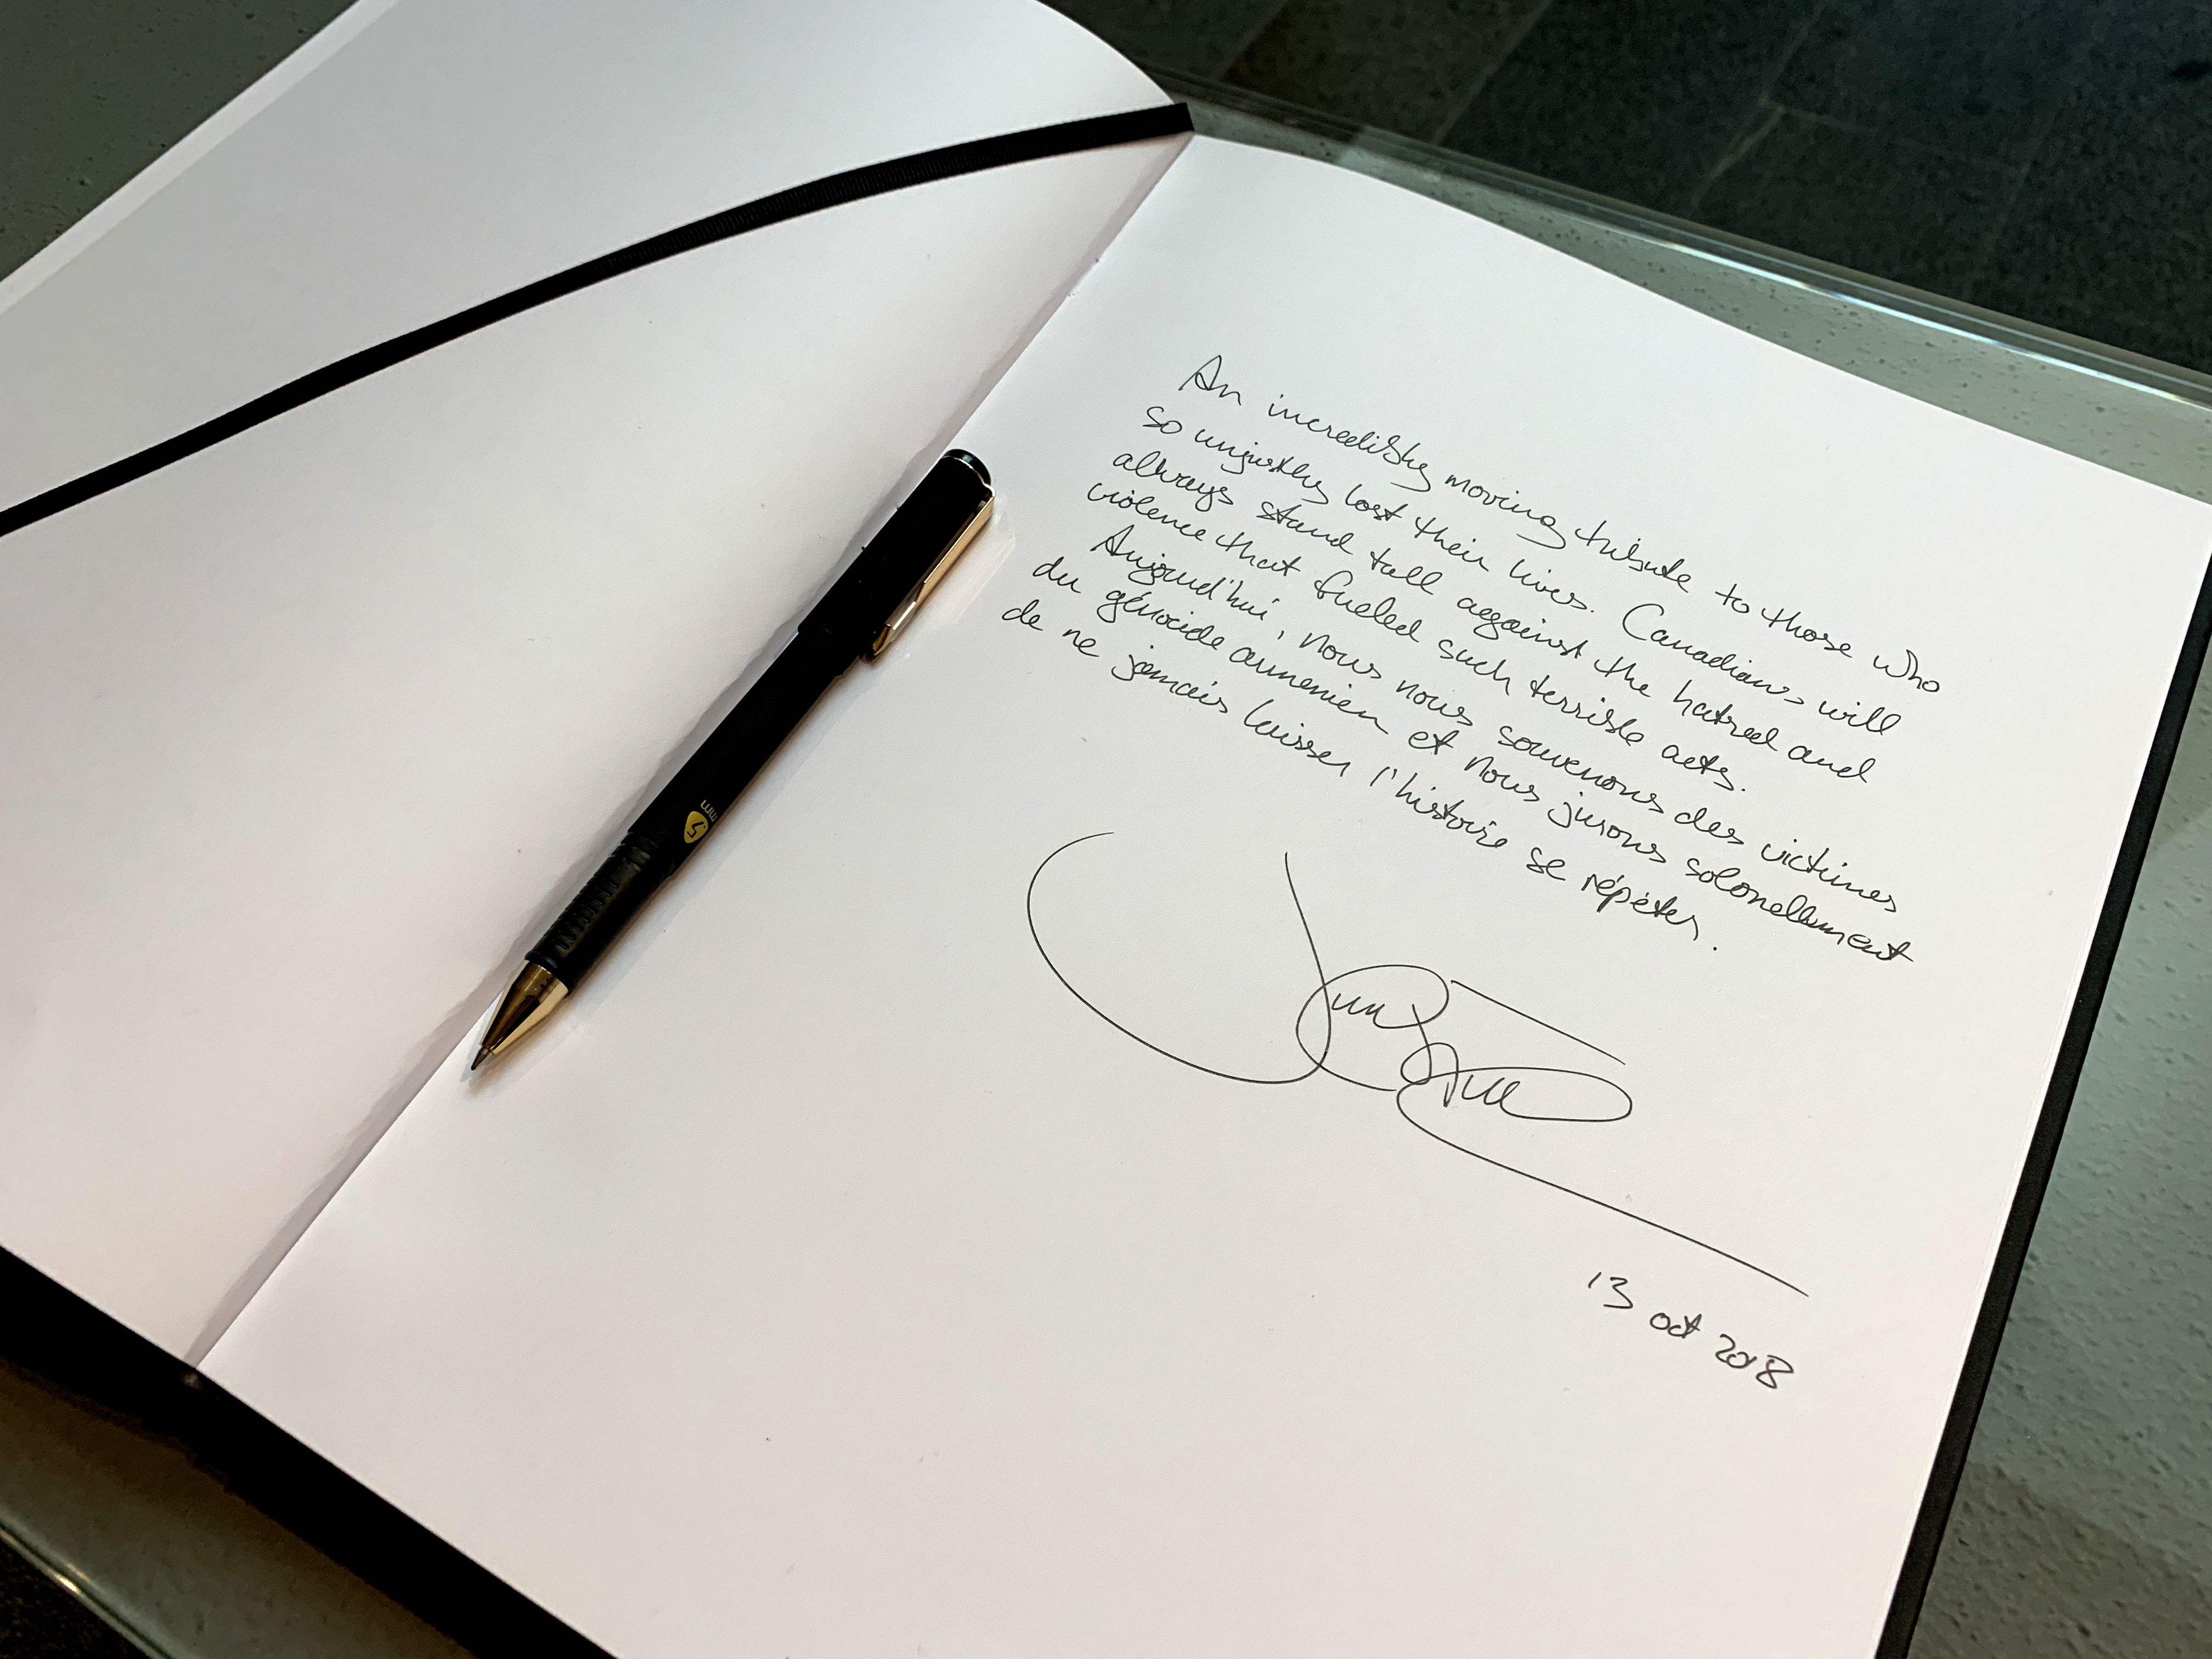 An incredibly moving tribute to those who
so unjustly lost their lives. Canadians will
always stand tall against the hatred and
violence that fueled such terrible acts.
Aujourd'hui, nous nous souvenons des victimes
du génocide arménien et nous jurons solonellement
de ne jamais laisser l'histoire se répéter.
13 oct 2018
mm